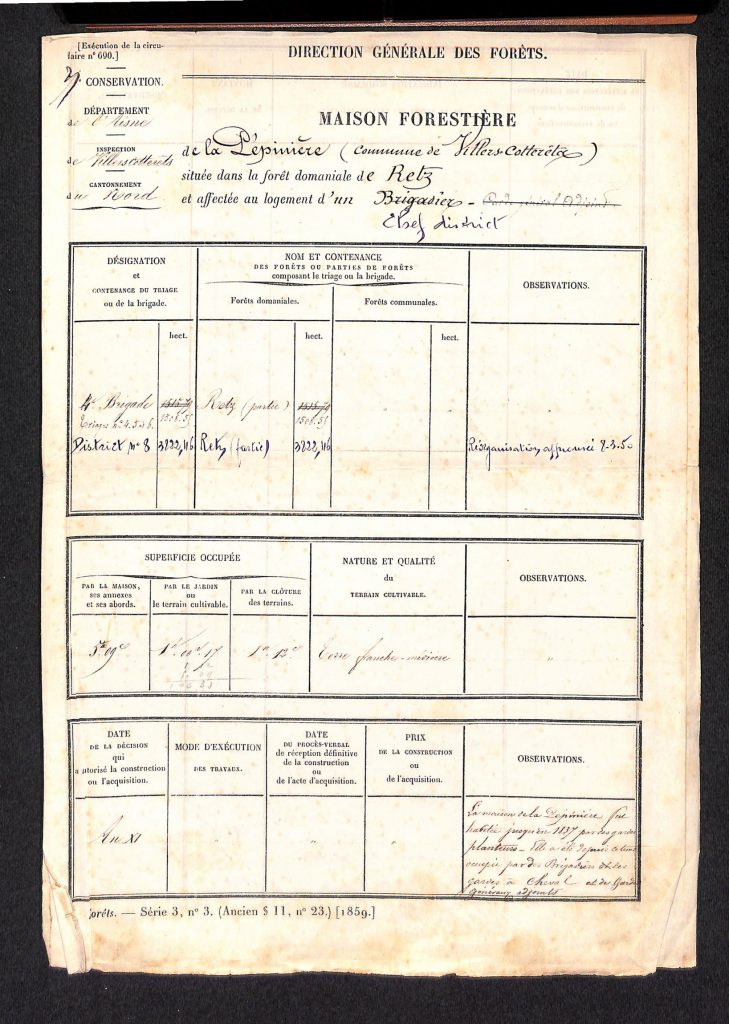 [Exécution de la circu-
laire n° 690.]
DIRECTION GÉNÉRALE DES FORÊTS.
CONSERVATION.
DÉPARTEMENT
de l'Aisne
INSPECTION
de Villers-cotterêts
CANTONNEMENT
du Nord
MAISON FORESTIÈRE
de la Pépinière (commune de Villers-Cotterêts)
située dans la forêt domaniale de Retz
et affectée au logement d'un Brigadier - Garde général Adjoint.
Chef district
DÉSIGNATION
et
CONTENANCE DU TRIAGE
ou de la brigade.
NOM ET CONTENANCE
DES FORÊTS OU PARTIES DE FORÊTS
composant le triage ou la brigade.
Forêts domaniales.
Forêts communales.
OBSERVATIONS.
hect.
hect.
hect.
4e Brigade 1515.79 Retz (partie) 1515.79
Triages nos 4.5 et 6. 1506.55 1506.55
District n° 8 3822,46 Retz (partie) 3822,46 Réorganisation approuvée 8-3-50
SUPERFICIE OCCUPÉE
PAR LA MAISON,
ses annexes
et ses abords.
PAR LE JARDIN
ou
le terrain cultivable.
PAR LA CLÔTURE
des terrains.
NATURE ET QUALITÉ
du
TERRAIN CULTIVABLE.
OBSERVATIONS.
5a 09c 1a 12c Terre franche - "
DATE
DE LA DÉCISION
qui
a autorisé la construction
ou l'acquisition.
MODE D'EXÉCUTION
DES TRAVAUX.
DATE
DU PROCÈS-VERBAL
de réception définitive
de la construction
ou
de l'acte d'acquisition.
PRIX
DE LA CONSTRUCTION
ou
de l'acquisition.
OBSERVATIONS.
An XI " " "
La maison de la Pépinière fut
habitée jusqu'en 1837 par des gardes
planteurs - Elle a été depuis
occupée par des Brigadiers et des
gardes à cheval et des Gardes
généraux adjoints
Forêts. — Série 3, n° 3. (Ancien § 11, n° 23.) [1859.]